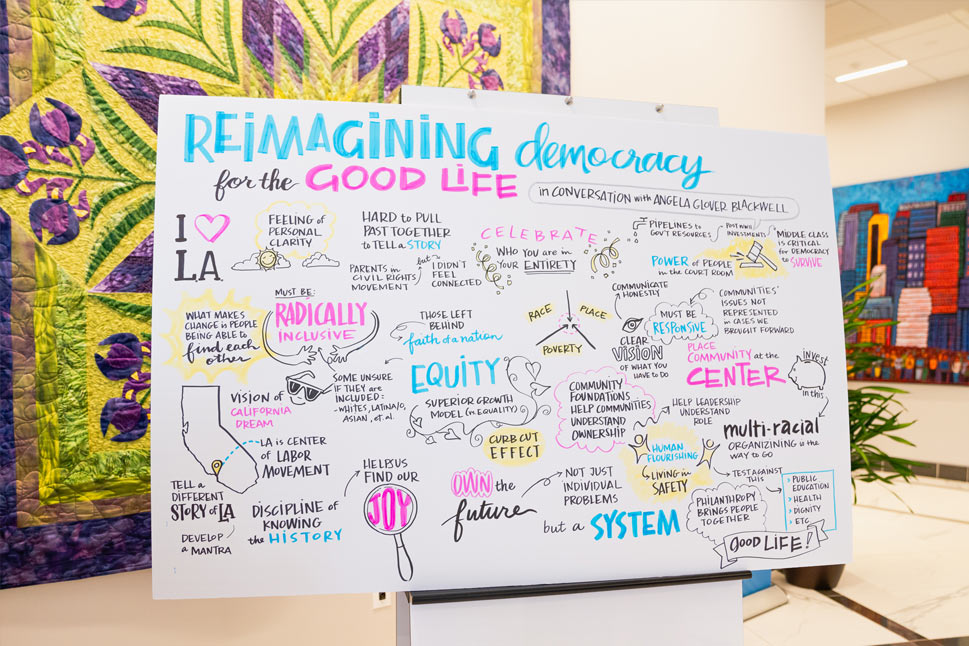 REIMAGINING democracy
for the GOOD LIFE
in CONVERSATION with ANGELA GLOVER BLACKWELL
I
LA
FEELING of
PERSONAL
CLARITY
HARD to PULL
PAST TOGETHER
to TELL a STORY
PARENTS in
CIVIL RIGHTS
MOVEMENT
but
I DIDN'T
FEEL
CONNECTED
CELEBRATE
WHO YOU are in
YOUR ENTIRETY
PIPELINES to
GOV'T RESOURCES
POST WWII
INVESTMENTS
MIDDLE CLASS
is CRITICAL
for DEMOCRACY
to SURVIVE
POWER of PEOPLE
in the COURT ROOM
WHAT MAKES
CHANGE is PEOPLE
BEING ABLE to
find each
other
MUST BE:
RADICALLY
INCLUSIVE
THOSE LEFT
BEHIND
faith of a nation
RACE
PLACE
POVERTY
COMMUNICATE
HONESTLY
CLEAR
VISION
of WHAT YOU
HAVE to DO
MUST BE
RESPONSIVE
COMMUNITIES'
ISSUES NOT
REPRESENTED
in CASES WE
BROUGHT FORWARD
PLACE
COMMUNITY at the
CENTER
invest
in this
VISION of
CALIFORNIA
DREAM
SOME UNSURE
IF THEY ARE
INCLUDED:
-WHITES, LATINA/O,
ASIAN, et. al.
EQUITY
SUPERIOR GROWTH
MODEL (in EQUALITY)
CURB CUT
EFFECT
COMMUNITY
FOUNDATIONS
HELP COMMUNITIES
UNDERSTAND
OWNERSHIP
HELP LEADERSHIP
UNDERSTAND
ROLE
multi-racial
ORGANIZING is the
WAY to GO
LA is CENTER
of LABOR
MOVEMENT
TELL a
DIFFERENT
STORY of LA
DEVELOP
a MANTRA
DISCIPLINE of
KNOWING
the HISTORY
HELP US
FIND OUR
JOY
OWN the
future
NOT JUST
INDIVIDUAL
PROBLEMS
but a SYSTEM
HUMAN
FLOURISHING
LIVING in
SAFETY
TEST AGAINST
THIS
PHILANTHROPY
BRINGS PEOPLE
TOGETHER
> PUBLIC
EDUCATION
> HEALTH
> DIGNITY
> ETC
GOOD LIFE!